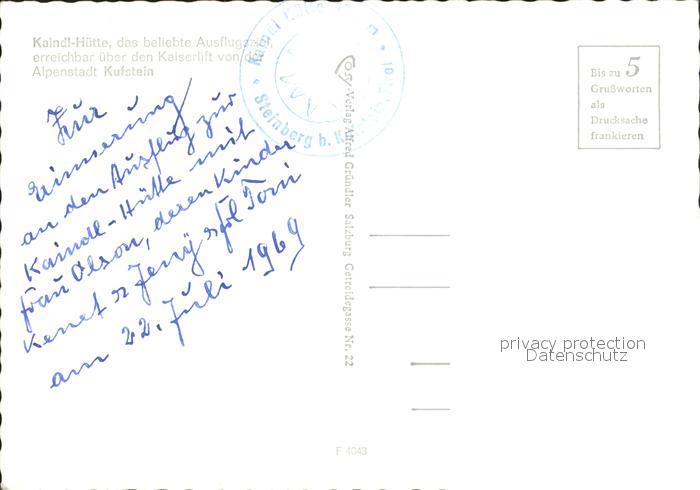 Kaindl-Hütte, das beliebte Ausflugsziel,
erreichbar über den Kaiserlift von der
Alpenstadt Kufstein
Zur
Erinnerung
an den Ausflug zur
Kaindl-Hütte mit
Frau Olson, deren Kinder
Kenet u Jeny u Frl Toni
am 22. Juli 1969
Steinberg b.
Verlag Alfred Gründler Salzburg Getreidegasse Nr. 22
Bis zu 5
Grußworten
als
Drucksache
frankieren
privacy protection
Datenschutz
F 4043